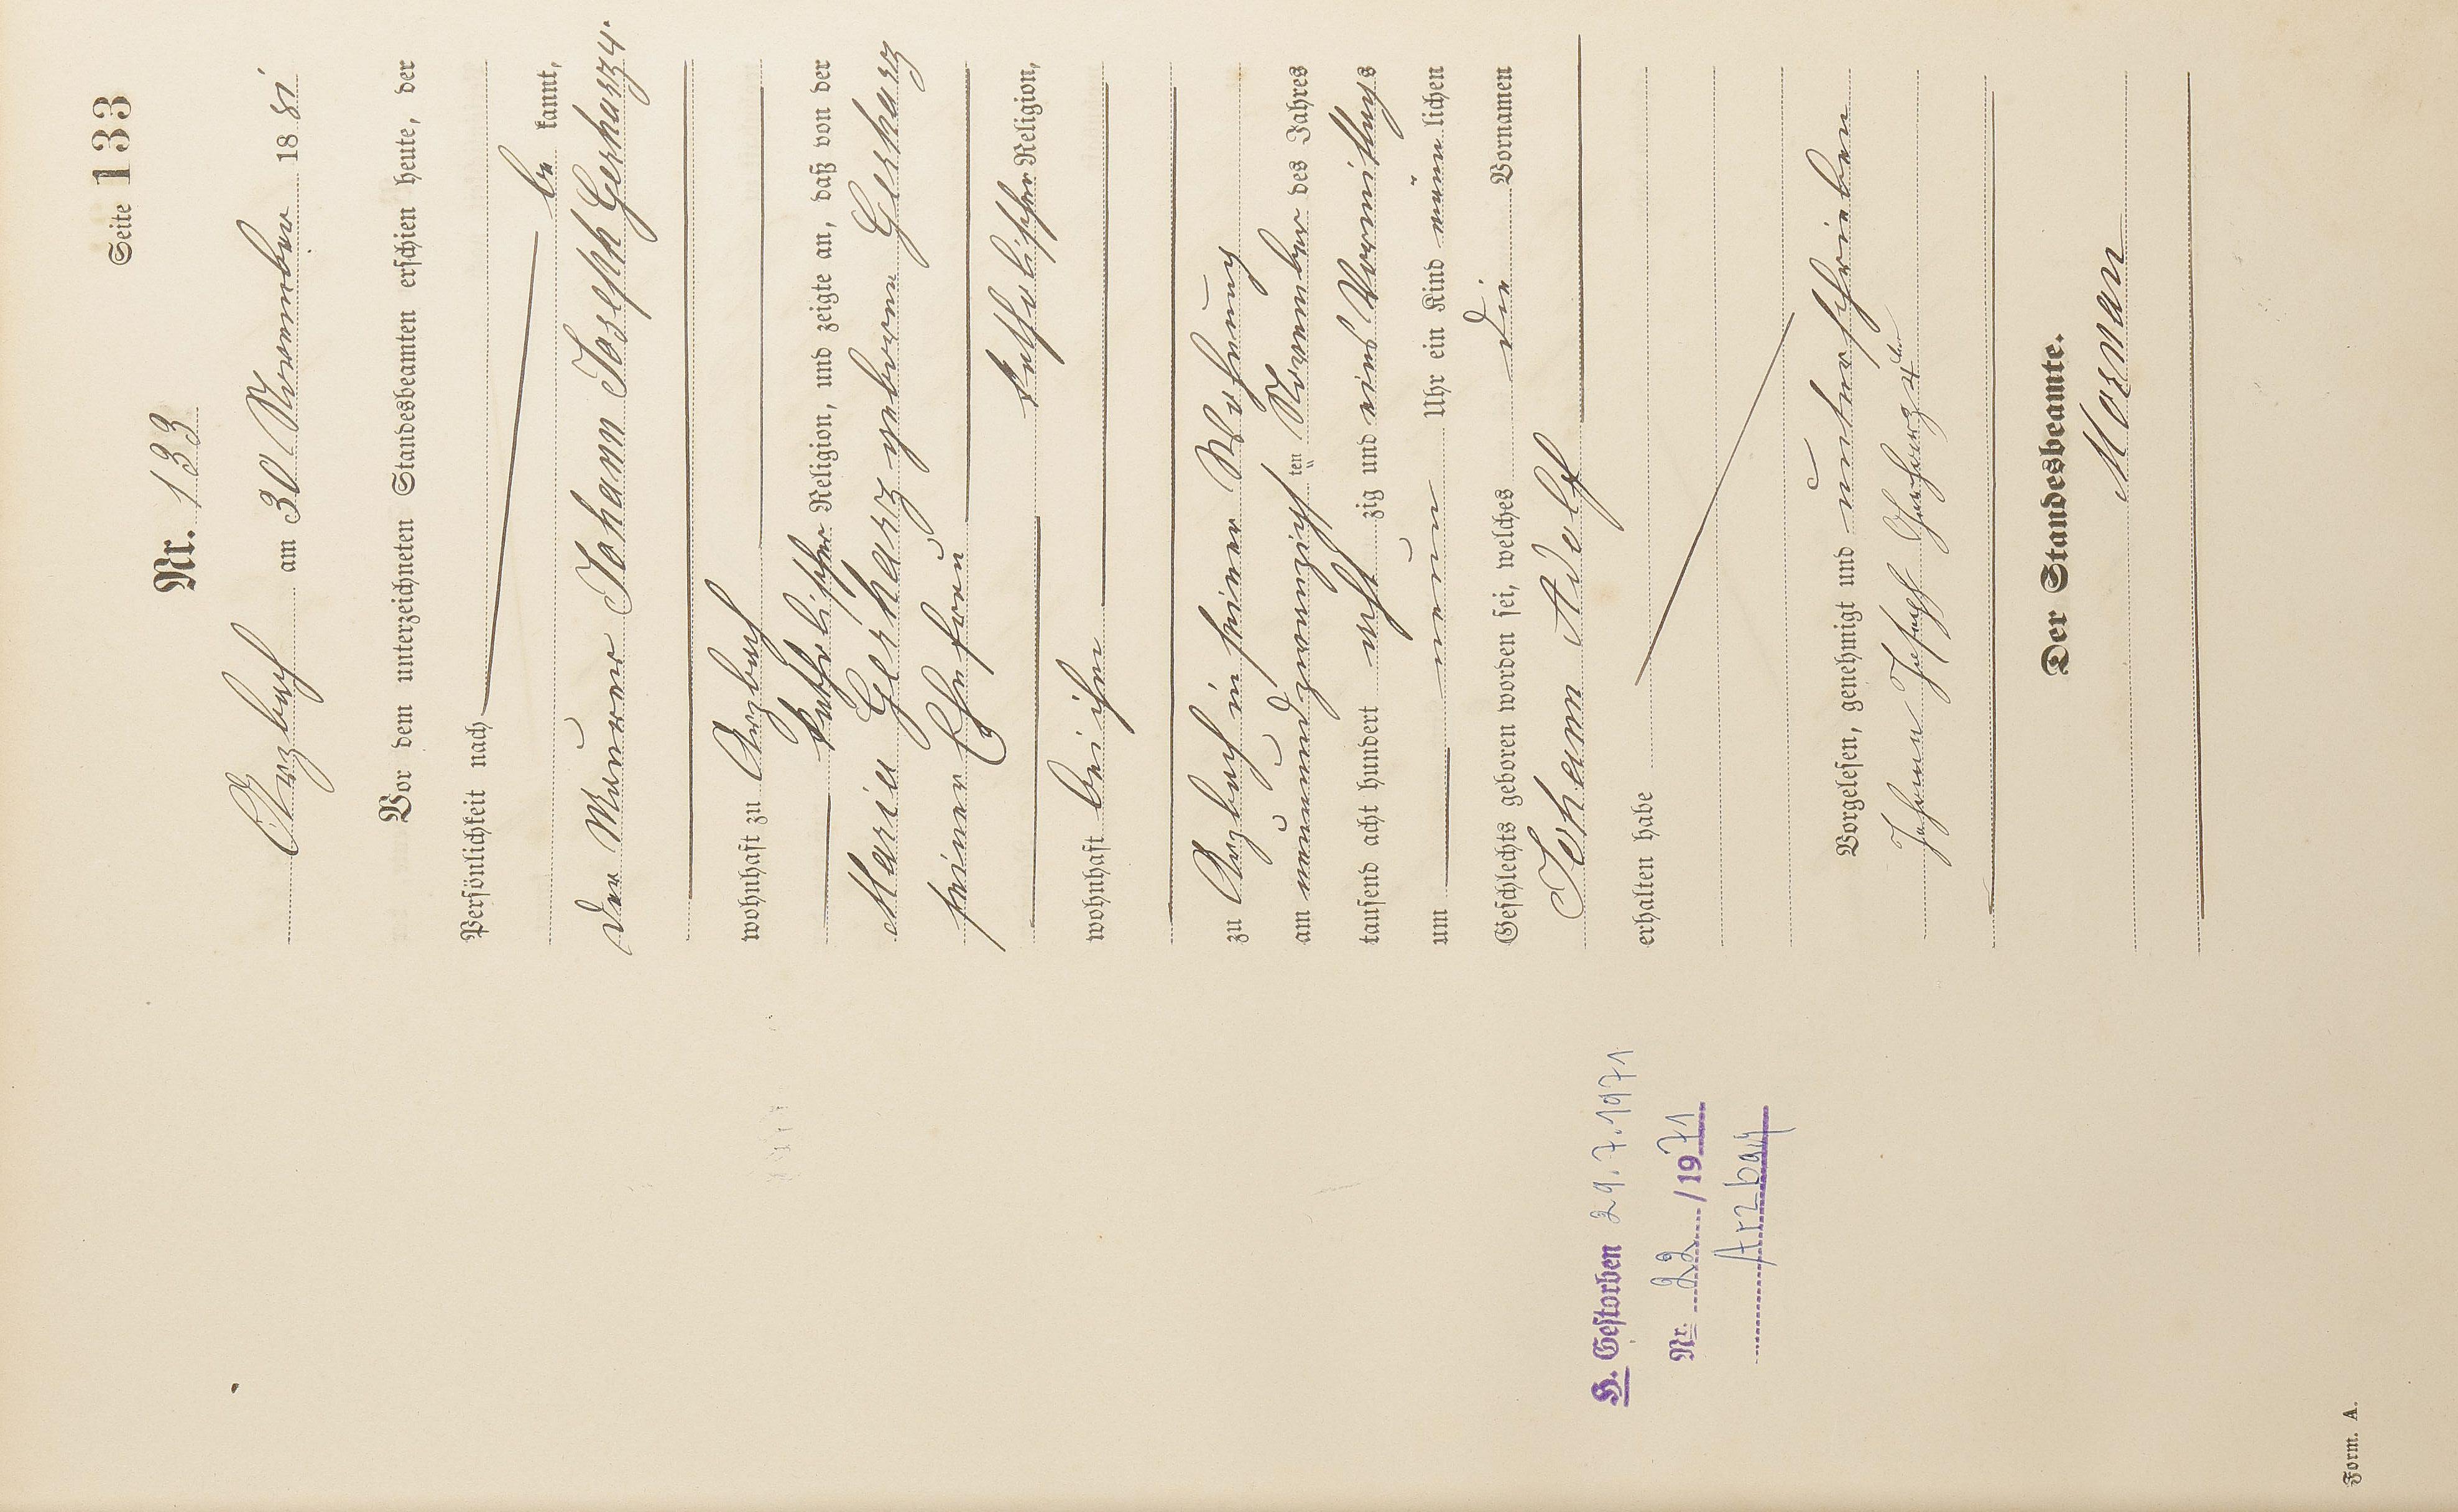 Seite 133
Nr. 133
Arzbach am 30 November 1881
Vor dem unterzeichneten Standesbeamten erschien heute, der
Persönlichkeit nach
be kannt,
der Maurer Johann Joseph Gerharz 4.
wohnhaft zu Arzbach
katholischer Religion, und zeigte an, daß von der
Maria Gerharz geborene Gerharz
seiner Ehefrau
katholischer Religion,
wohnhaft bei ihm
zu Arzbach in seiner Wohnung
am neunundzwanzigsten November des Jahres
tausend acht hundert achtzig und eins Vormittags
um neun Uhr ein Kind männlichen
Geschlechts geboren worden sei, welches die Vornamen
Johann Adolf
erhalten habe
Vorgelesen, genehmigt und unterschrieben
Johann Joseph Gerharz 4ter
Der Standesbeamte.
H. Gestorben 29.7.1971
Nr. 22 /1971
Arzbach
Form. A.